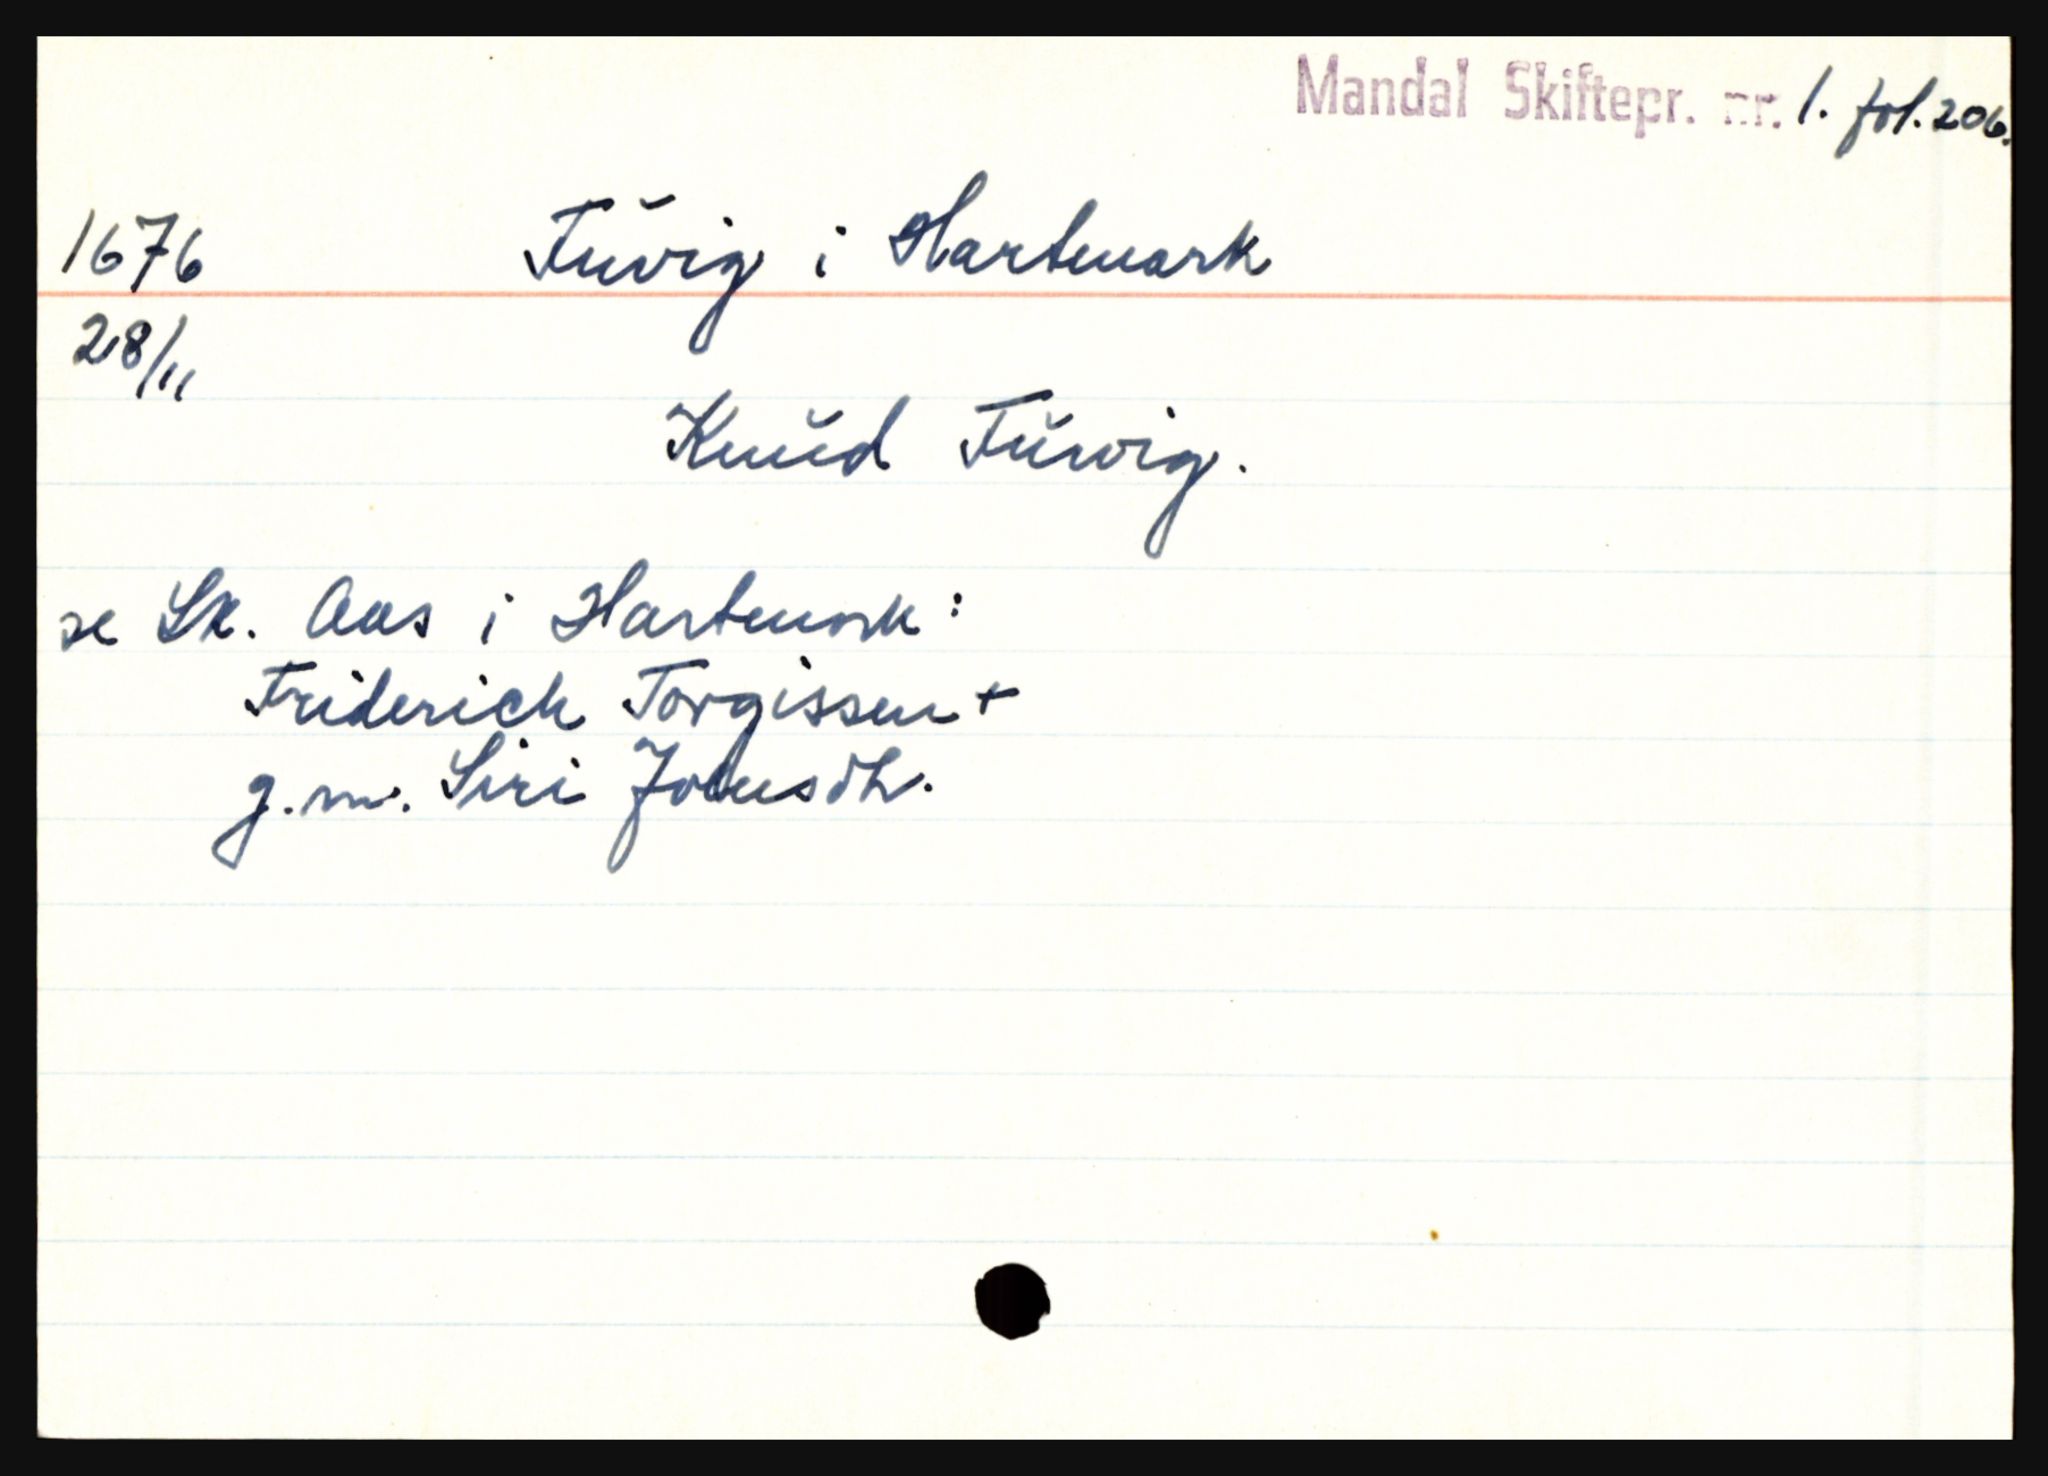 Mandal Skiftepr. nr. 1. fol. 206.
1676 Tŭvig i Hartmark
28/11
Knŭd Tŭvig.
se Sk. Aas i Hartmark:
Friderich Torgissen +
g.m. Siri dh.